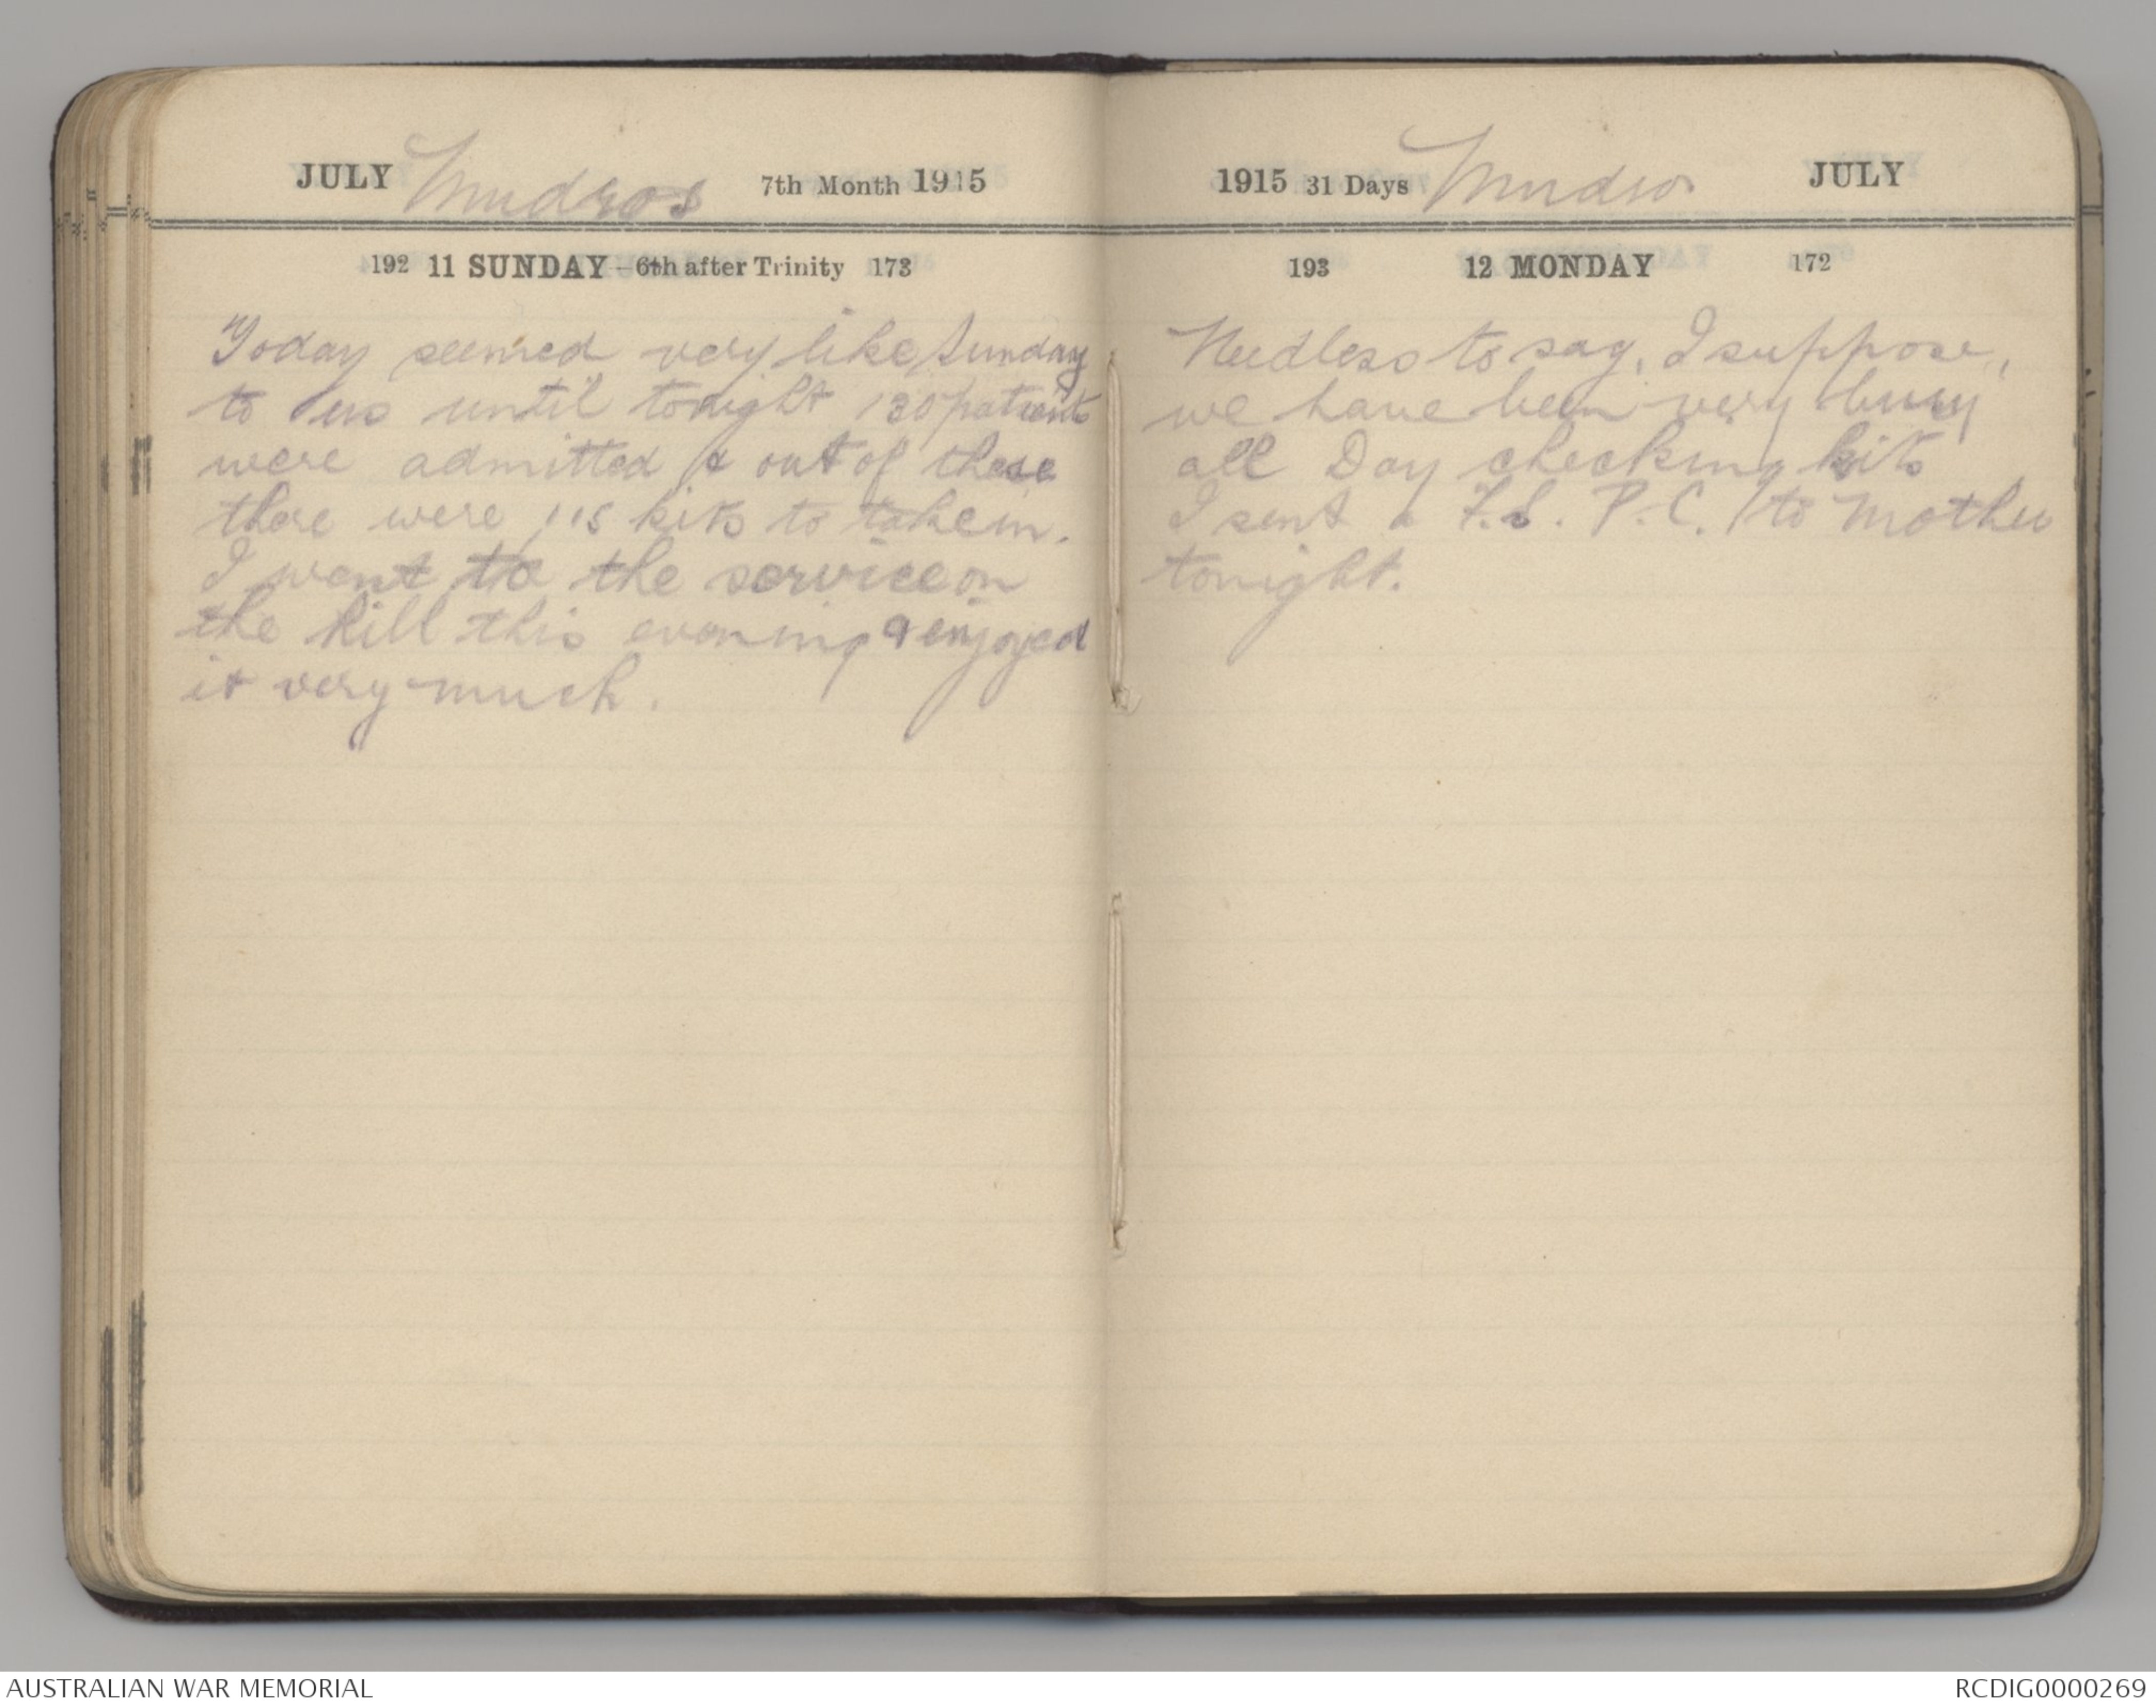 JULY Mudros 7th Month 1915
192 11 SUNDAY - 6th after Trinity 173
Today seemed very like Sunday
to us until tonight 130 patients
were admitted & out of these
there were 115 kits to take in.
I went to the service on
the hill this evening & enjoyed
it very much.
1915 31 Days Mudros JULY
193 12 MONDAY 172
Needless to say, I suppose,
we have been very busy
all Day checking kits
I sent a F.S. P.C. to Mother
tonight.
AUSTRALIAN WAR MEMORIAL
RCDIG0000269